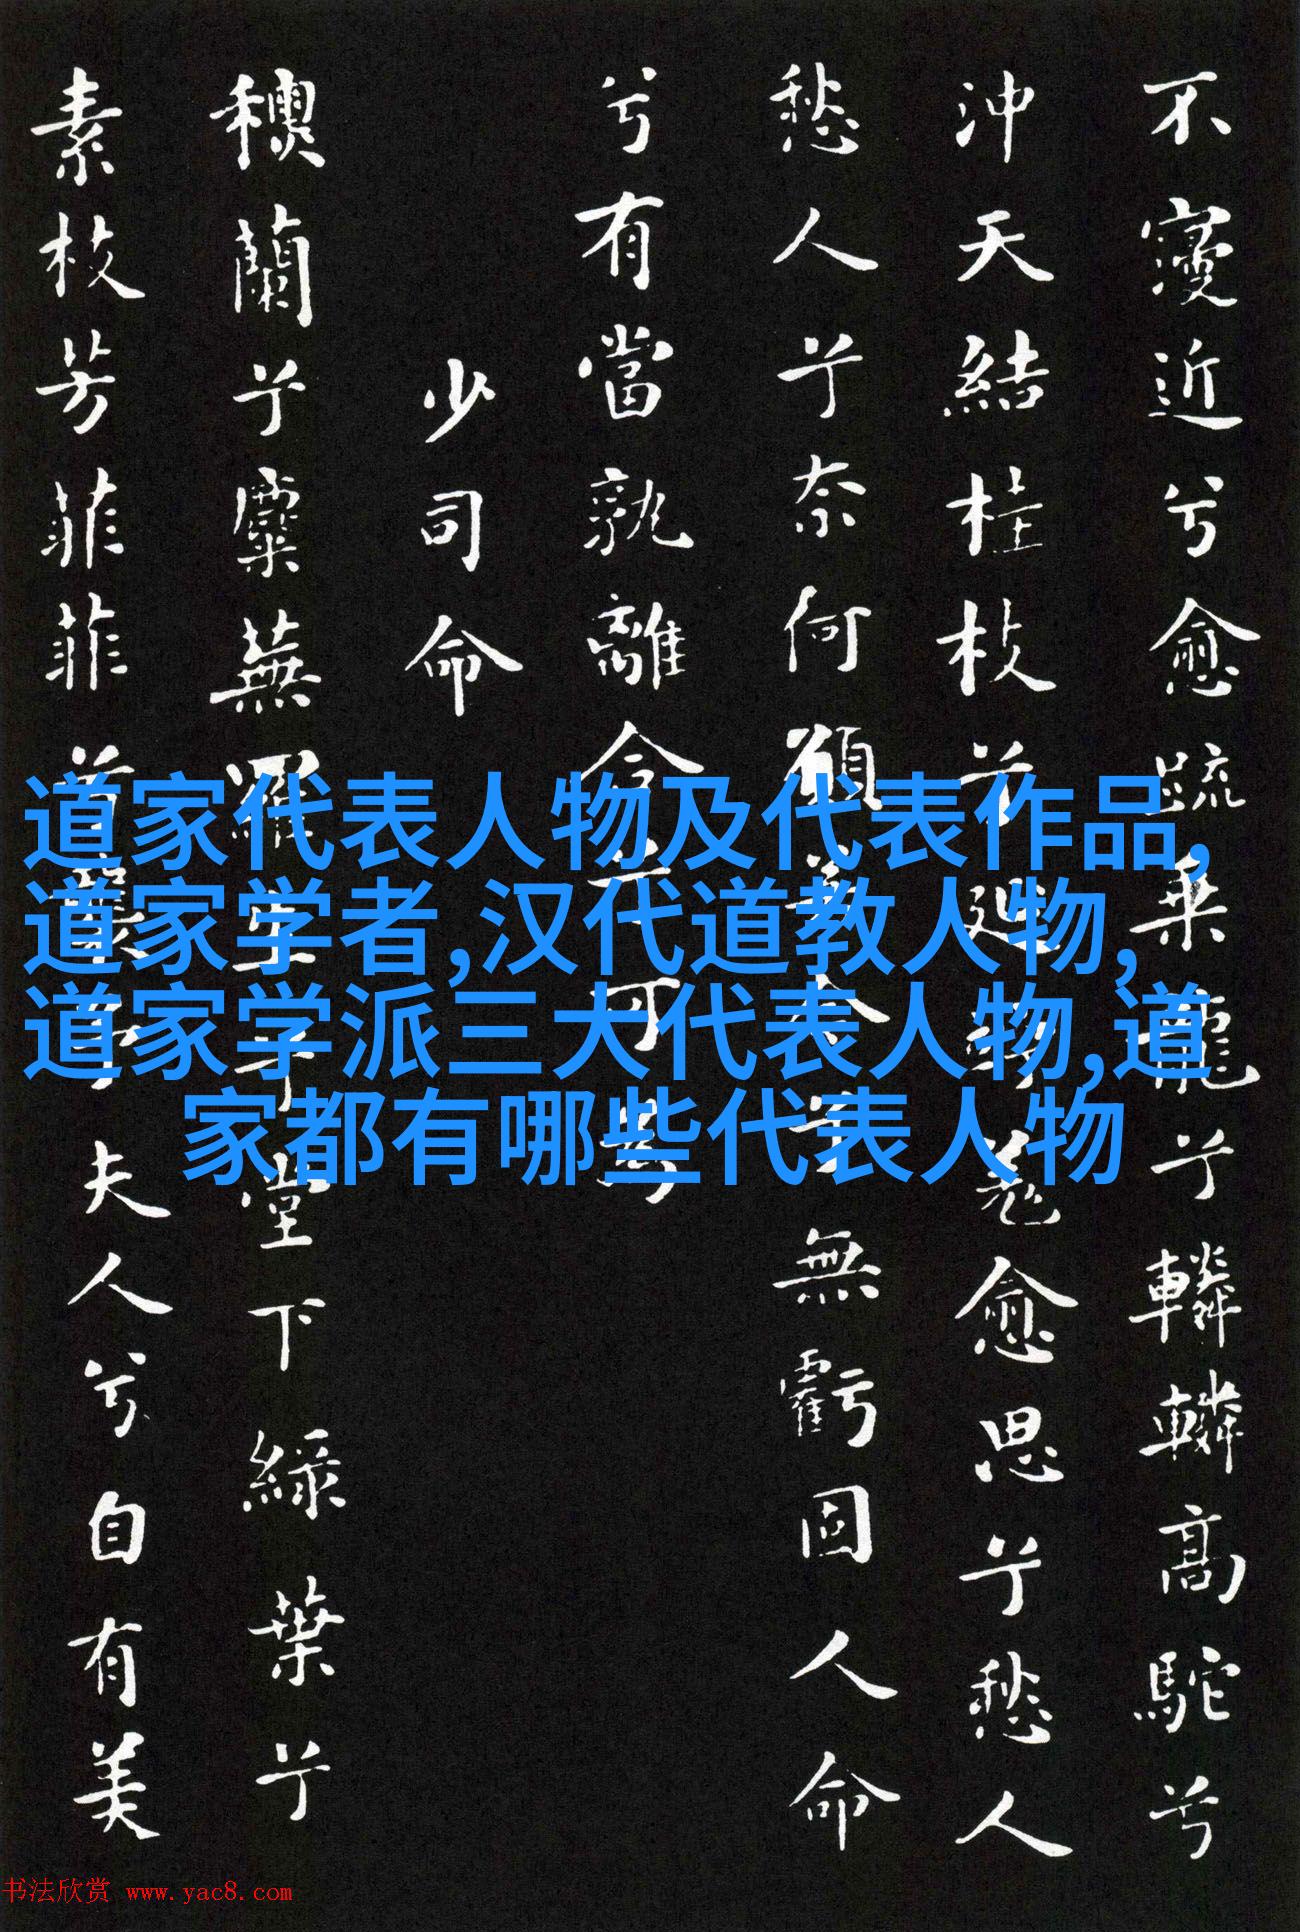 不寖近兮愈疏乘龍兮轔轔高駝兮
沖天結桂枝兮延竚羌愈思兮愁人
愁人兮奈何願若今兮無虧固人命
兮有當孰離合兮可為
少司命
蘭兮麋蕪羅生兮堂下綠葉兮
素枝芳菲菲兮襲予夫人兮自有美
道家代表人物及代表作品,
道家学者,汉代道教人物,
道家学派三大代表人物,道
家都有哪些代表人物
书法欣赏 www.yac8.com